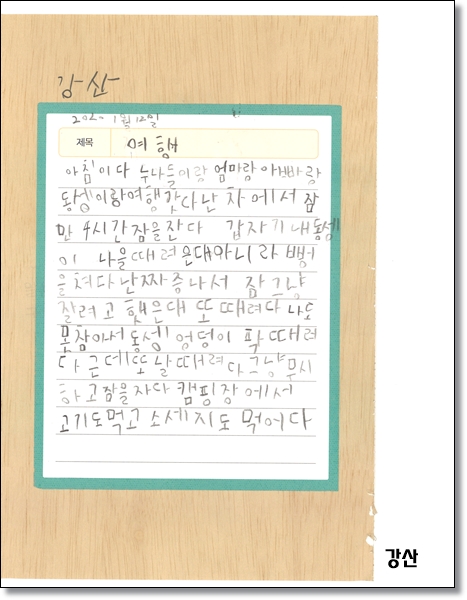 강산
202- 1월 12일
제목 여행
아침이다 누나들이랑 엄마랑 아빠랑
동셍이랑여행갓다난 차에서 잠
만 4시간 잠을잔다 갑자기 내동셍
이 나을때려은대아니라 뺑어
을쳐다난짜증나서 잠그냥
잘려고 햇은대 또 때려다 나도
못참아서 동셍 엉덩이 팍 때려
다 근데또 날때려다 그냥무시
하고잠을자다 캠핑장에서
고기도먹고 소세지도 먹어다
강산